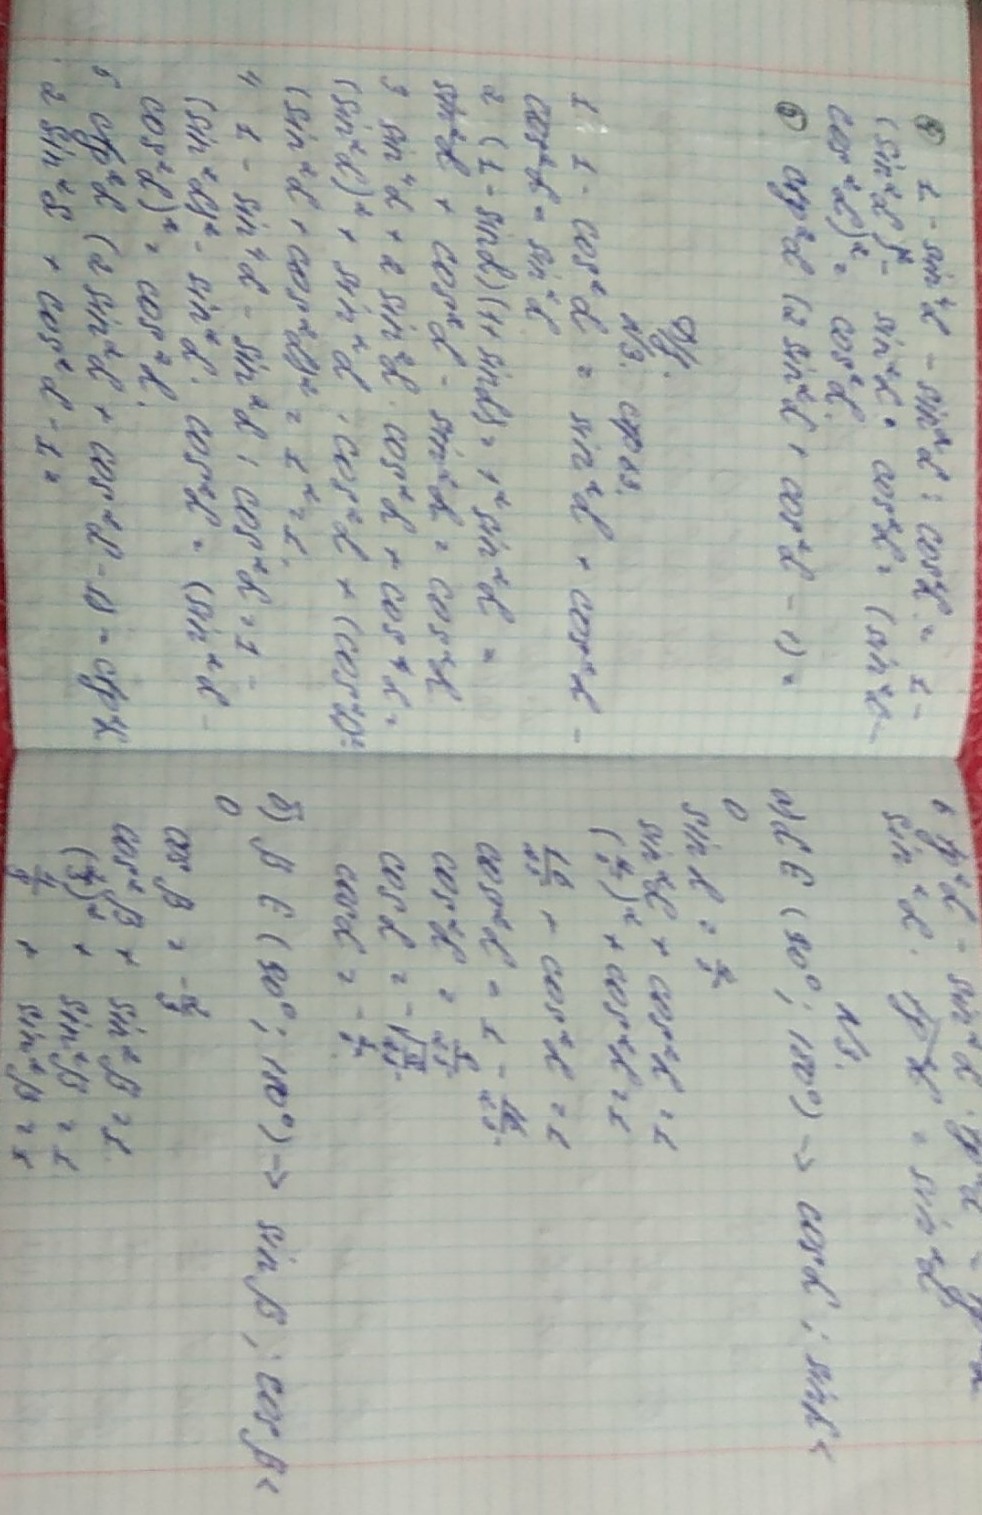 ④ 1 - sin⁴α - sin²α : cos²α = 1 -
(sin²α)² - sin²α · cos²α = (sin²α -
cos²α)² = cos²α.
⑤ ctg²α (2 sin²α + cos²α - 1) =
Д/з.
№3. стр 63.
1. 1 - cos²α = sin²α + cos²α -
cos²α = sin²α
2 (1 - sinα)(1 + sinα) = 1² - sin²α =
sin²α + cos²α - sin²α = cos²α
3 sin⁴α + 2 sin²α · cos²α + cos⁴α =
(sin²α)² + sin²α · cos²α + (cos²α)² =
(sin²α + cos²α)² = 1² = 1.
4 1 - sin⁴α - sin²α : cos²α = 1 -
(sin²α)² - sin²α · cos²α = (sin²α -
cos²α)² = cos²α.
5 ctg²α (2 sin²α + cos²α - 1) = ctg²α
2 sin²α + cos²α - 1 =
sin²α · tg²α = sin²α
№5.
а) α ∈ (90°; 180°) -> cosα ; sinα <
0
sin α = 4/5
sin²α + cos²α = 1
(4/5)² + cos²α = 1
16/25 + cos²α = 1
cos²α = 1 - 16/25.
cos²α = 9/25
cosα = -√9/25.
cosα = - 3/5.
б) β ∈ (90°; 180°) -> sinβ ; cosβ <
0
cosβ =
cos²β + sin²β = 1.
+ sin²β = 1
+ sin²β = 1